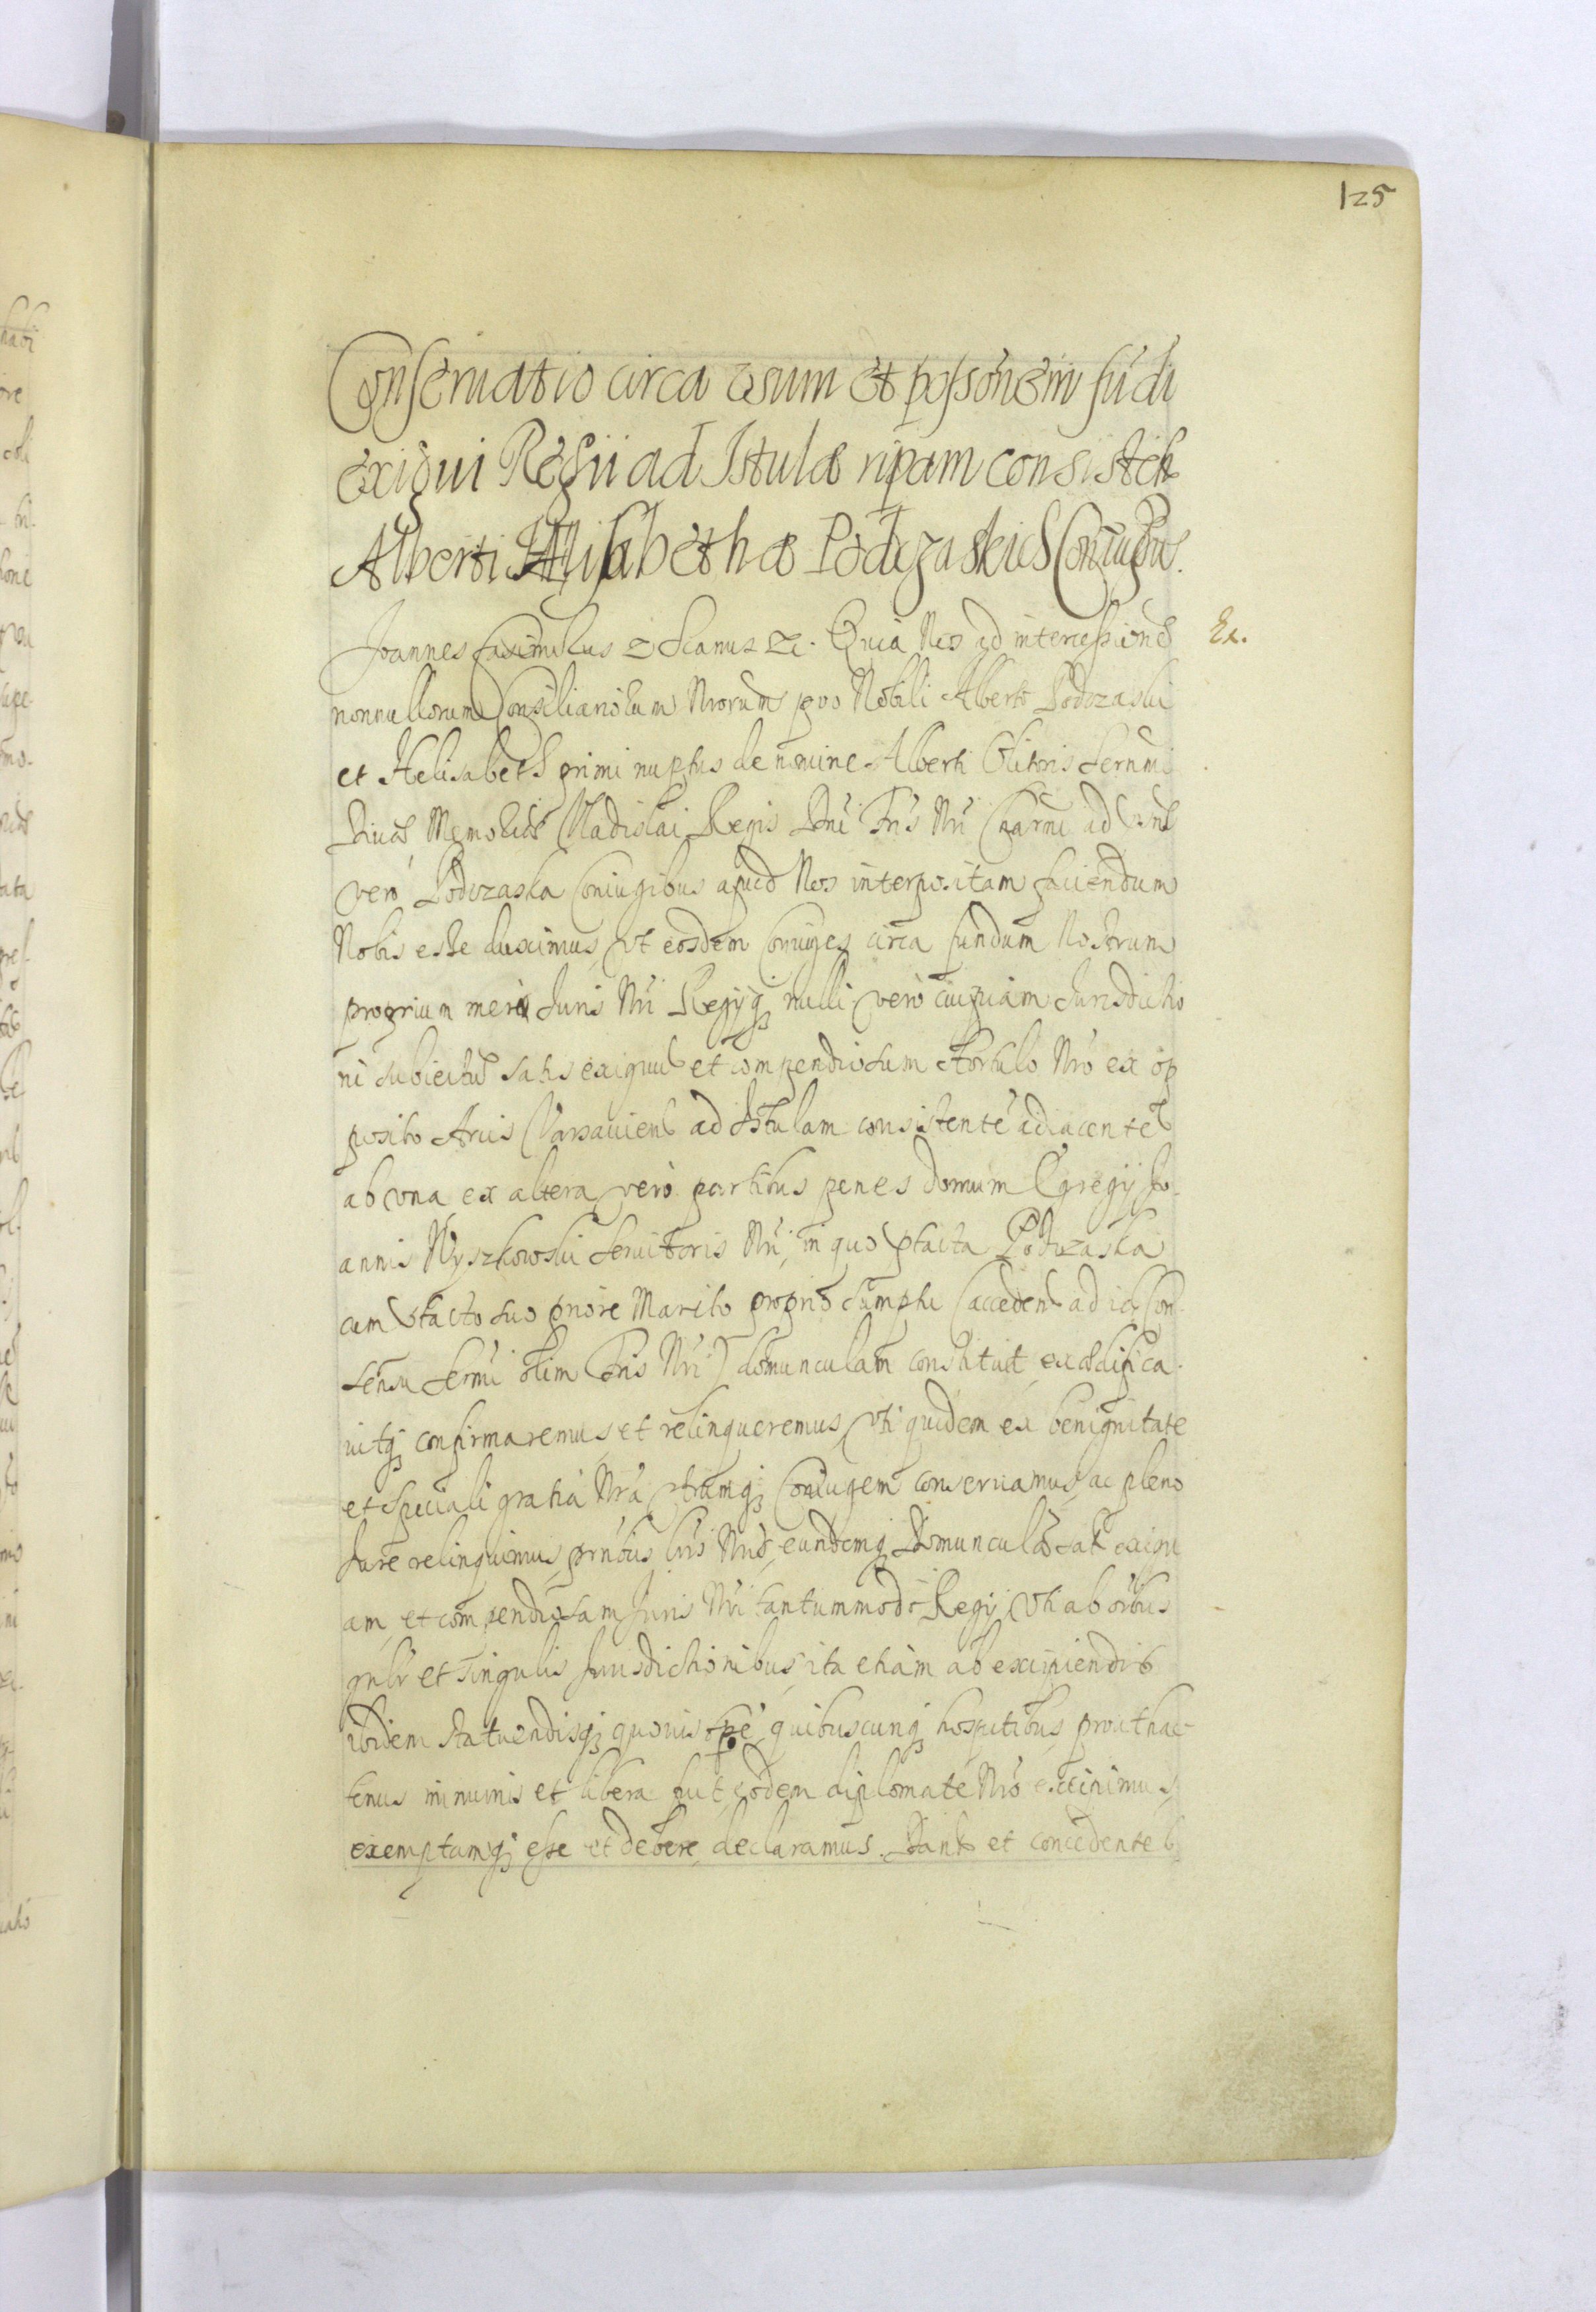 125
Conseruatio circa usum et possōnem fūdi
exigui Regii ad Istulæ ripam consisteñ
Alberti Helisabethæ Podozaskie Coniugū.
Joannes Casimirus etc. Quia Nos ad intercessionē
Ex.
nonnullorum Consiliariorum Nrorum pro Nobili Alberto Podozaski
et Helisabeth primi nuptus de nomine Alberti Olitoris Sernmi
Diuæ Memoriæ Vladislai Regis Dni Fris Nri Charmi ad
vero Podozaska Coniugibus apud Nos interpositam faciendum
Nobis esse duximus, vt eosdem Coniuges circa fundum Nostrum
proprium meri Juris Nri Regijq; nulli vero cuipiam Jurisdictio
ni subiectū satis exiguū et compendiosum Hortulo Nro ex op
posito Arcis Varsauieñ ad Istulam consistente adiacentē
ab vna ex altera vero partibus penes domum Egregij Jo-
annis Wyszkowski Seruitoris Nri, in quo pfacta Podozaska
cum pfacto suo priore Marito proprio sumptu (accedente ad id Con
sensu Sermi olim Fris Nri) domunculam constituit, exædifica-
uitq; confirmaremus, et relinqueremus, vti quidem ex benignitate
et speciali gratia Nra vtrumq; Coniugem conseruamus, ac pleno
Jure relinquimus, pntibus lris Nris, eandemq; Domunculā satis exigu
am, et compendiosam Juris Nri tantummodo Regij, vti ab oibus
gnlr et singulis Jurisdictionibus, ita etiam ab excipiendis
ibidem statuendisq; quouis tpe, quibuscunq; hospitibus, prout hac-
tenus immunis et libera fuit, eodem diplomate Nro eximimus,
exemptamq; esse et debere, declaramus. Dantes et concedentes